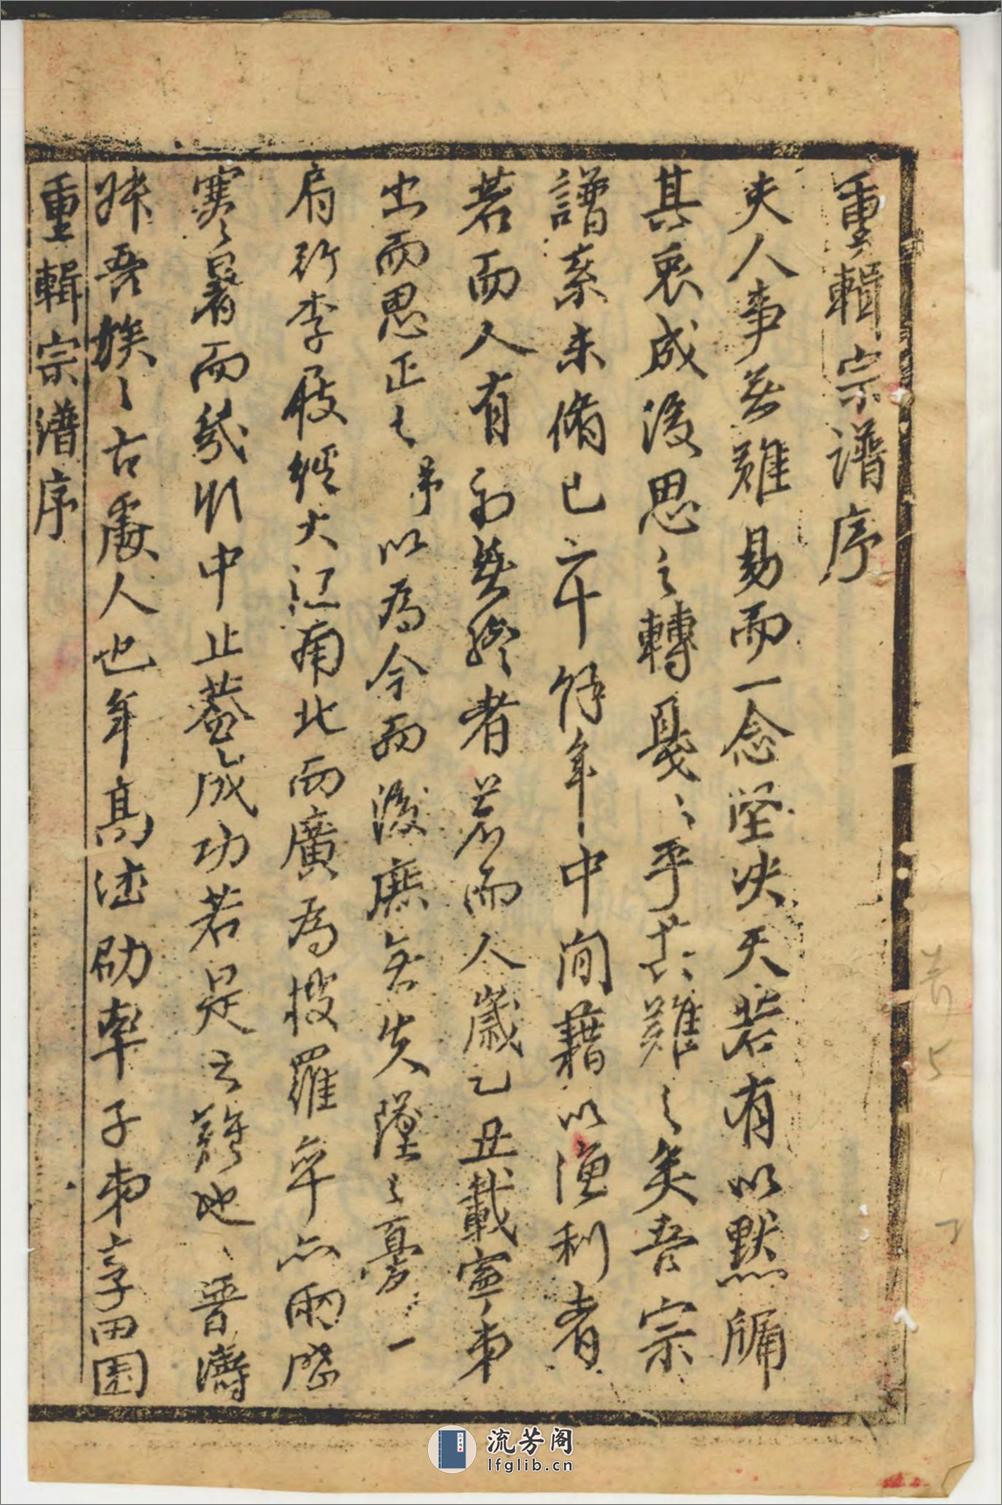 重輯宗譜序
夫人事無難易而一念堅决天若有以默牖
其衷成後思之轉戛〻乎其難之矣吾宗
譜系未脩已六十餘年中间藉以漁利者
若而人有初無終者若而人歲乙丑載寧弟
出而思正之弟以為今而後庶無失墜之憂一
肩行李屐縱大江南北而廣為搜羅卒亦兩歷
寒暑而幾以中止蓋成功若是之難也〻晋濤
吾族〻古處人也年高德劭率子弟享田園
重輯宗譜序
流芳阁
lfglib.cn